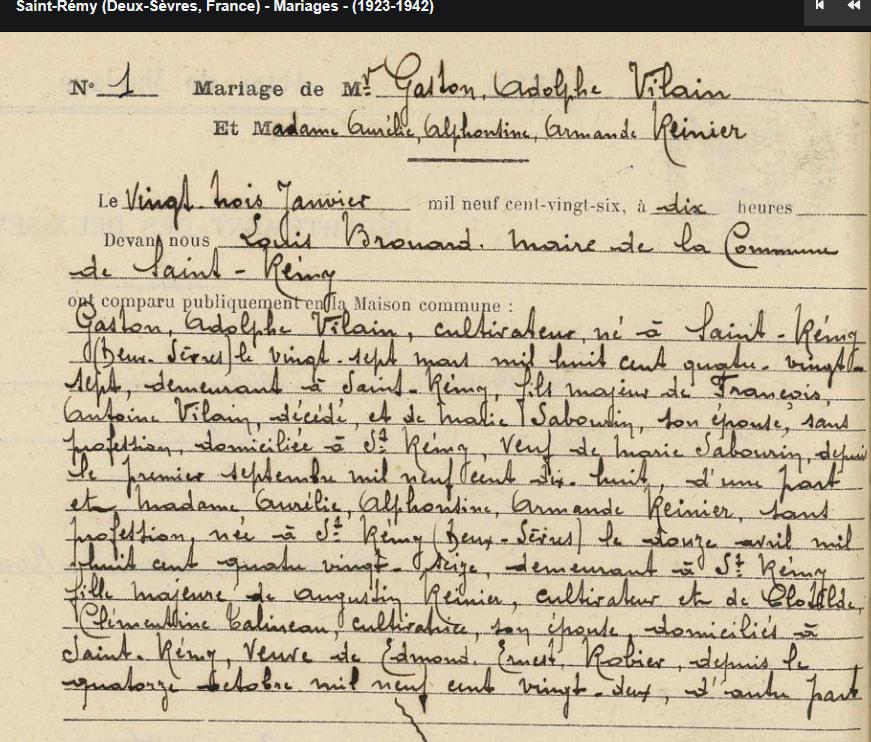 Saint-Rémy (Deux-Sèvres, France) - Mariages - (1923-1942)
N° 1 Mariage de Mr Gaston, Adolphe Vilain
Et Madame Aurélie, Alphontine, Armande Reinier
Le Vingt-trois Janvier mil neuf cent-vingt-six, à dix heures
Devant nous Louis Brouard. Maire de la Commune
de Saint-Rémy
ont comparu publiquement en la Maison commune :
Gaston, Adolphe Vilain, cultivateur, né à Saint-Rémy
(Deux-Sèvres) le vingt-sept mars mil huit cent quatre-vingt-
sept, demeurant à Saint-Rémy, fils majeur de François,
Antoine Vilain, décédé, et de Marie Sabourin, son épouse, sans
profession, domiciliée à St Rémy, Veuf de Marie Sabourin, depuis
le premier septembre mil neuf cent dix-huit, d'une part
et madame Aurélie, Alphontine, Armande Reinier, sans
profession, née à St Rémy (Deux-Sèvres) le douze avril mil
huit cent quatre vingt-seize, demeurant à St Rémy
fille majeure de Augustin Reinier, cultivateur et de Clotilde,
Clémentine Talineau, cultivatrice, son épouse, domiciliés à
Saint-Rémy, Veuve de Edmond, Ernest, Robier, depuis le
quatorze octobre mil neuf cent vingt-deux, d'autre part